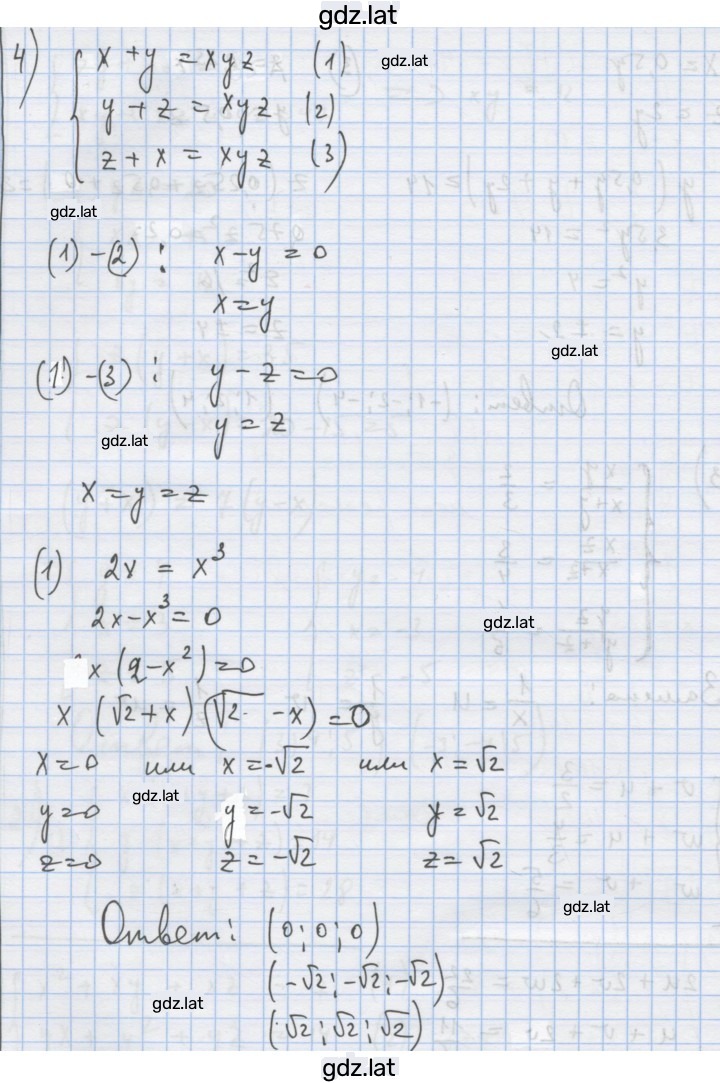 gdz.lat
4) x + y = xyz (1)
gdz.lat
y + z = xyz (2)
z + x = xyz (3)
gdz.lat
(1) - (2) : x - y = 0
x = y
gdz.lat
(1) - (3) : y - z = 0
y = z
gdz.lat
x = y = z
(1) 2x = x³
2x - x³ = 0
gdz.lat
x (2 - x²) = 0
x (√2 + x) (√2 - x) = 0
x = 0 или x = -√2 или x = √2
gdz.lat
y = 0 y = -√2 y = √2
z = 0 z = -√2 z = √2
gdz.lat
Ответ: (0; 0; 0)
(-√2; -√2; -√2)
gdz.lat
(√2; √2; √2)
gdz.lat